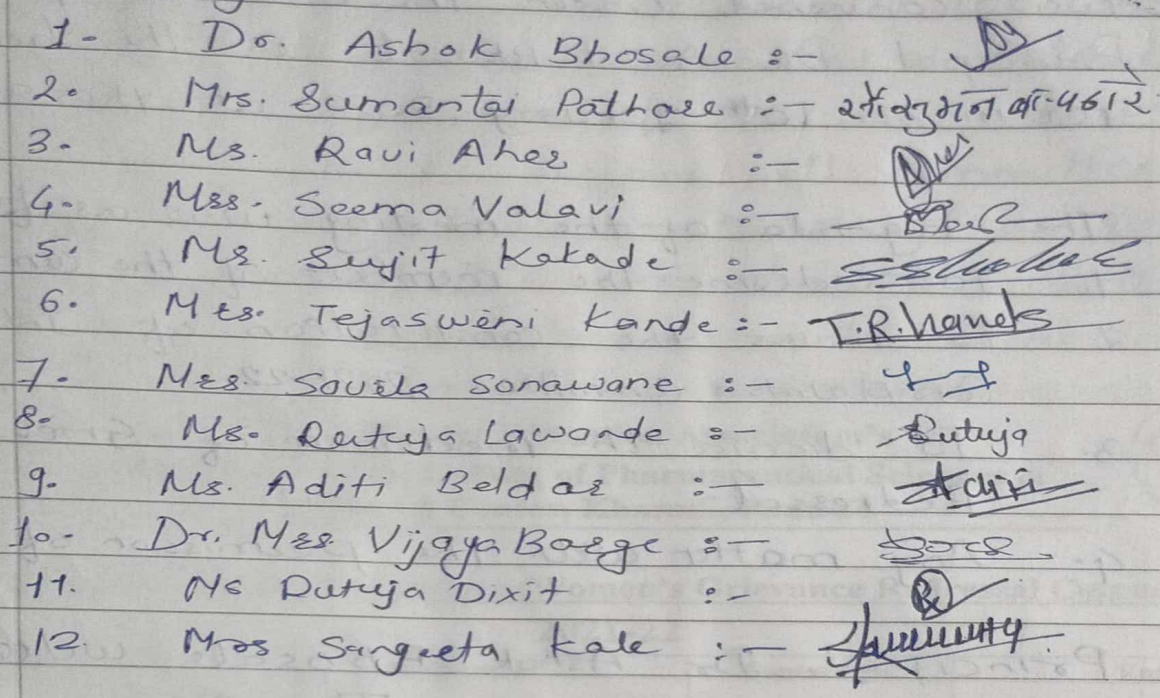 1- Dr. Ashok Bhosale :-
2. Mrs. Sumantai Pathare :- पठारे
3. Ms. Ravi Aher :-
4. Mrs. Seema Valavi :-
5. Mr. Sujit Kakade :-
6. Mrs. Tejaswini Kande :- T.R.Kande
7. Mrs Sonawane :-
8. Ms. Rutuja Lawande :- Rutuja
9. Ms. Aditi Beldar : Aditi
10- Dr. Mrs Vijaya Barge :-
11. Ms Rutuja Dixit :-
12. Mrs Sangeeta Kale :-